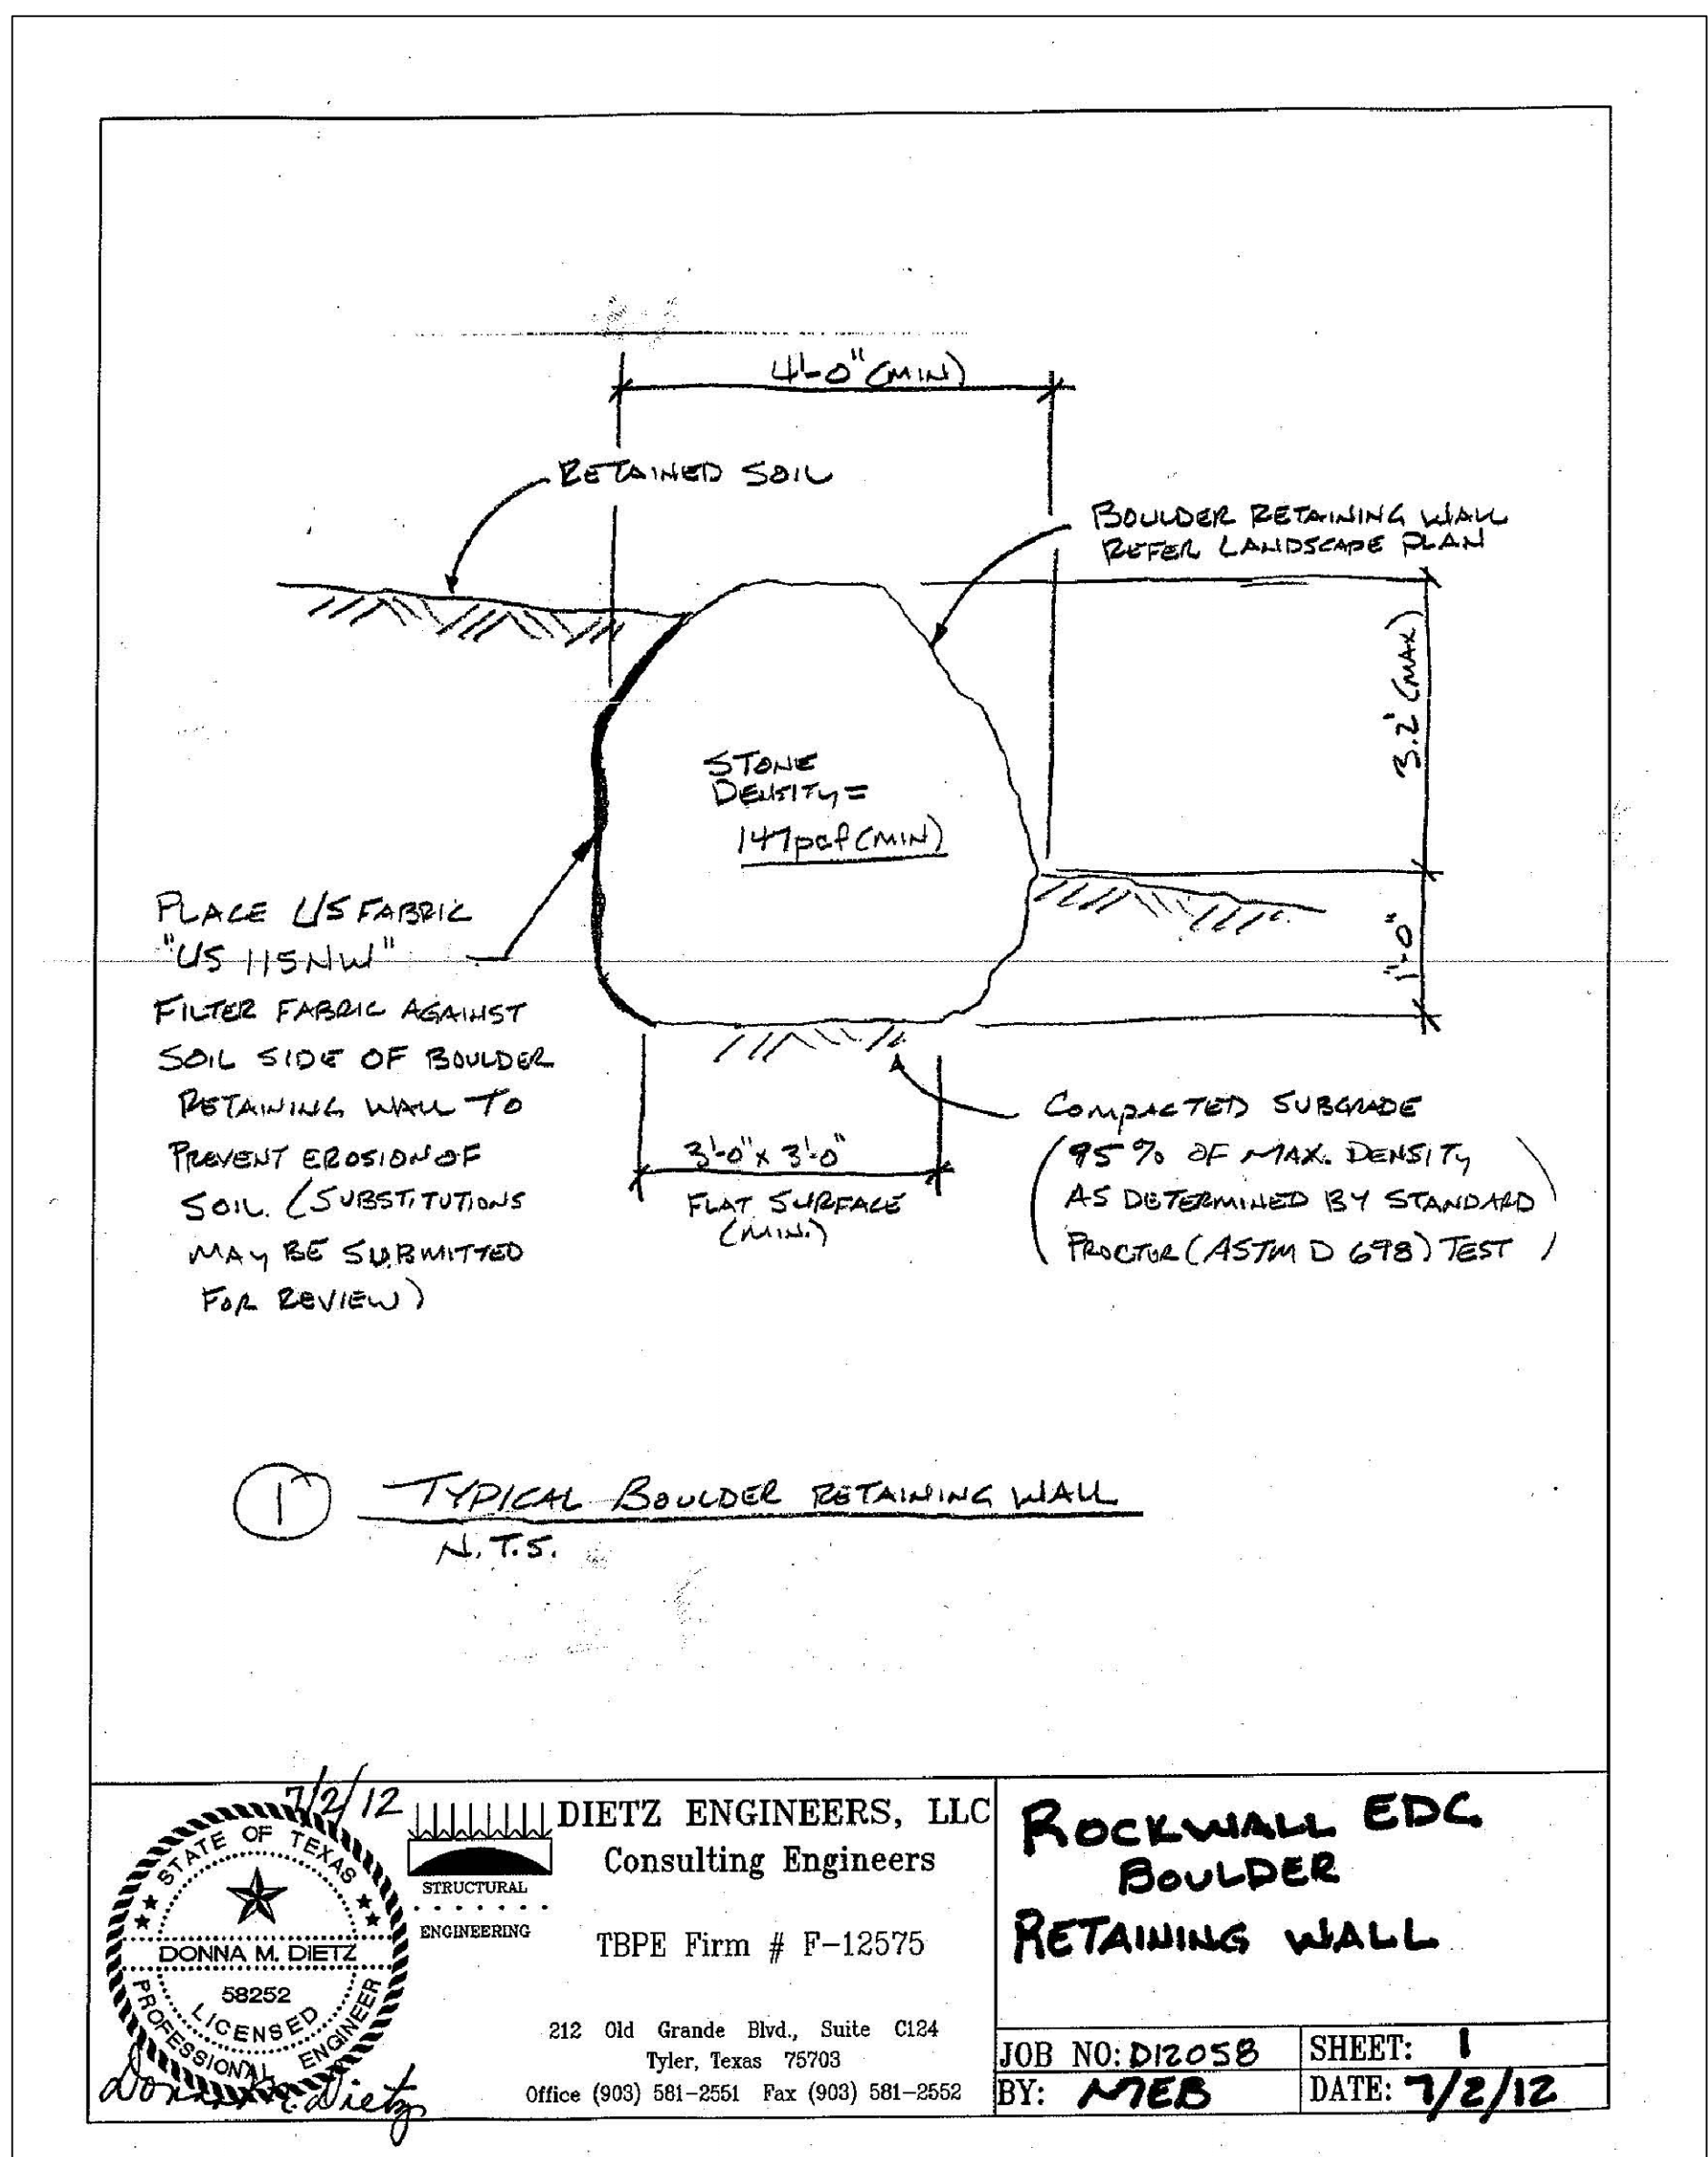 4'-0" (MIN)
RETAINED SOIL
BOULDER RETAINING WALL
REFER LANDSCAPE PLAN
3.2' (MAX)
STONE
DENSITY =
147pcf (MIN)
PLACE US FABRIC
"US 115NW"
FILTER FABRIC AGAINST
SOIL SIDE OF BOULDER
RETAINING WALL TO
PREVENT EROSION OF
SOIL. (SUBSTITUTIONS
MAY BE SUBMITTED
FOR REVIEW)
1'-0"
3'-0" x 3'-0"
FLAT SURFACE
(MIN.)
COMPACTED SUBGRADE
(95% OF MAX. DENSITY
AS DETERMINED BY STANDARD
PROCTOR (ASTM D 698) TEST)
1 TYPICAL BOULDER RETAINING WALL
N.T.S.
7/2/12
STATE OF TEXAS
DONNA M. DIETZ
58252
LICENSED
PROFESSIONAL ENGINEER
Donna M. Dietz
STRUCTURAL
ENGINEERING
DIETZ ENGINEERS, LLC
Consulting Engineers
TBPE Firm # F-12575
212 Old Grande Blvd., Suite C124
Tyler, Texas 75703
Office (903) 581-2551 Fax (903) 581-2552
ROCKWALL EDC
BOULDER
RETAINING WALL
JOB NO: D12058
SHEET: 1
BY: MEB
DATE: 7/2/12